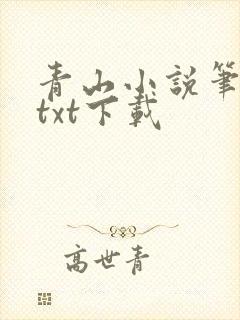 青山小説筆
txt下載
高世青